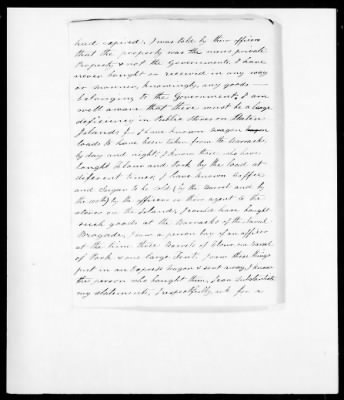 had expired, I was told by their officers
that the property was the mens private
Property & not the Governments. I have
never bought or received in any way
or manner, knowingly, any goods
belonging to the Government. I am
well aware that there must be a large
deficiency in Public Stores on Staten
Island, for I have known wagon
loads to have been taken from the Barracks
by day and night, I know those who have
bought Flour and Pork by the load at
different times, I have known Coffee
and Sugar to be sold (by the Barrel and by
the by the officers or their agent to the
stores on the Island, I could have bought
such goods at the Barracks of the Naval
Brigade, I saw a person buy of an officer
at the time three Barrels of Flour, one Barrel
of Pork & one large tent, I saw these things
put in an Express wagon & sent away, I know
the person who bought them, I can substantiate
my statements, I respectfully ask for a